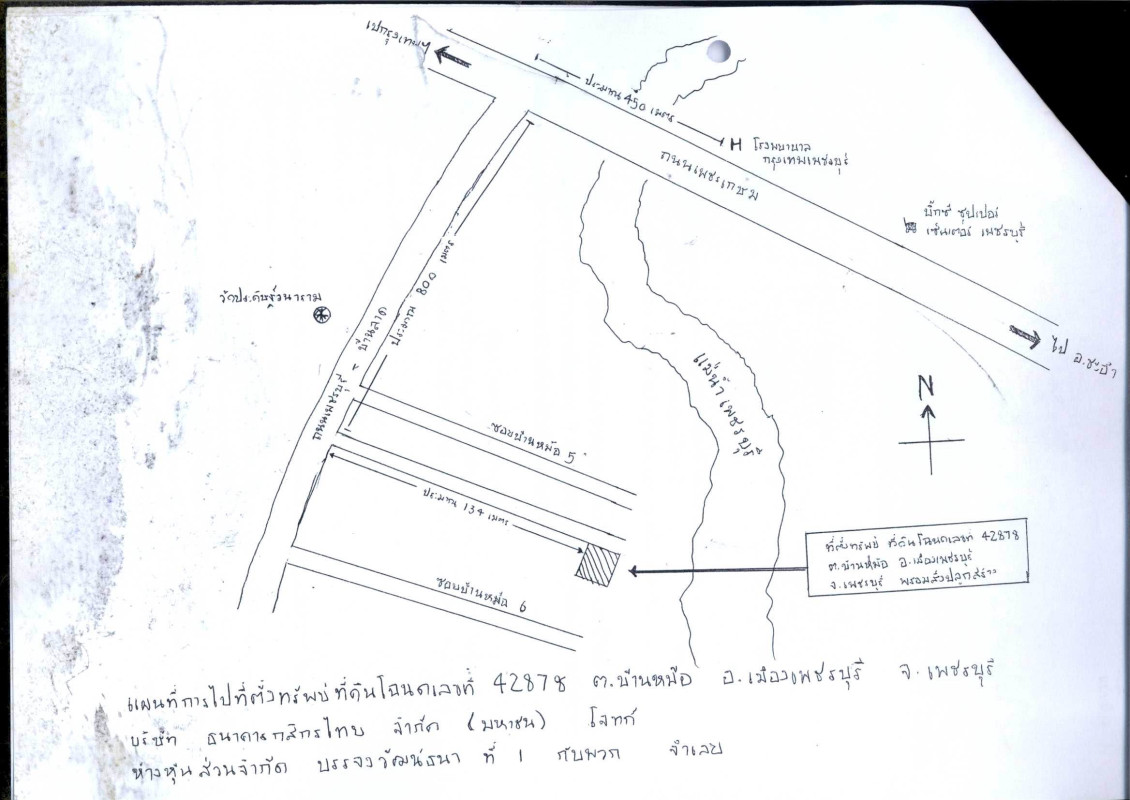 ไปกรุงเทพฯ
ประมาณ 450 เมตร
H โรงพยาบาล
กรุงเทพเพชรบุรี
ถนนเพชรเกษม
บิ๊กซี ซุปเปอร์
เซ็นเตอร์ เพชรบุรี
ไป อ.ชะอำ
วัดประดิษฐ์วนาราม
ประมาณ 800 เมตร
ถนนเพชรบุรี - บ้านลาด
แม่น้ำเพชรบุรี
N
ซอยบ้านหม้อ 5
ประมาณ 134 เมตร
ซอยบ้านหม้อ 6
ที่ตั้งทรัพย์ ที่ดินโฉนดเลขที่ 42878
ต.บ้านหม้อ อ.เมืองเพชรบุรี
จ.เพชรบุรี พร้อมสิ่งปลูกสร้าง
แผนที่การไปที่ตั้งทรัพย์ที่ดินโฉนดเลขที่ 42878 ต.บ้านหม้อ อ.เมืองเพชรบุรี จ.เพชรบุรี
บริษัท ธนาคารกสิกรไทย จำกัด (มหาชน) โจทก์
ห้างหุ้นส่วนจำกัด บรรจงวัฒน์ธนา ที่ 1 กับพวก จำเลย